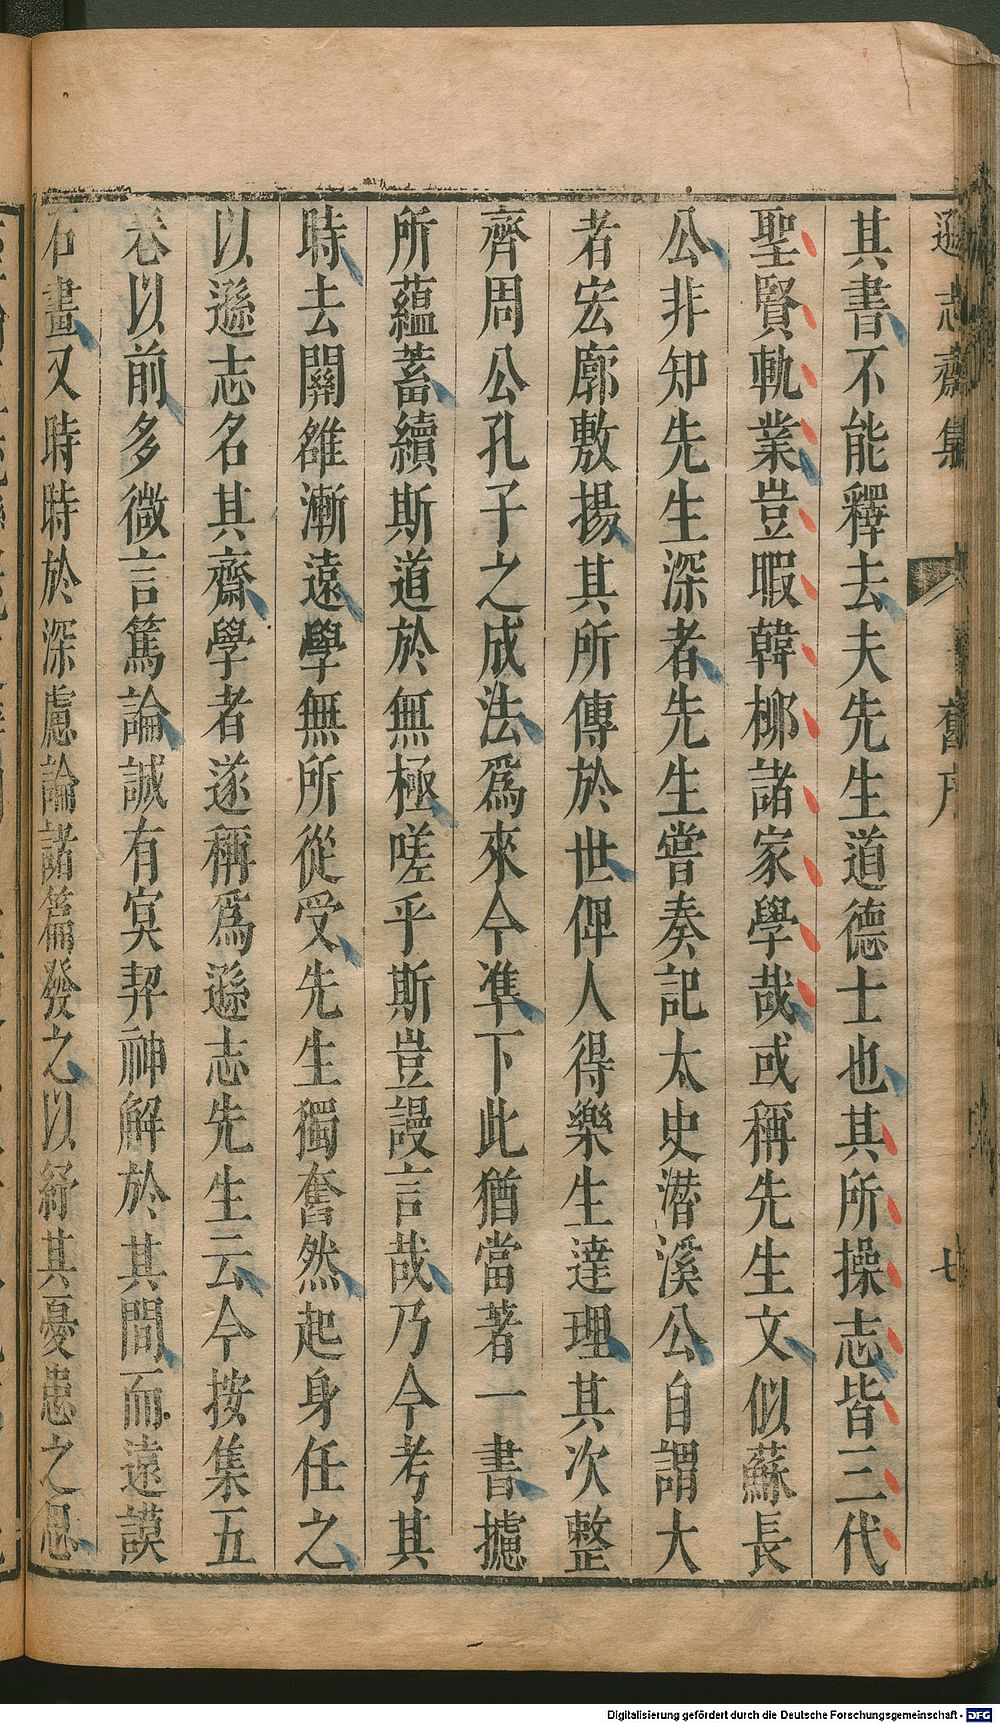 遜志齋集
舊序
七
其書不能釋去夫先生道德士也其所操志皆三代
聖賢軌業豈暇韓栁諸家學哉或稱先生文似蘇長
公非知先生深者先生嘗奏記太史潛溪公自謂大
者宏廓敷揚其所傳於世俾人得樂生達理其次整
齊周公孔子之成法爲來今準下此猶當著一書攄
所蘊蓄續斯道於無極嗟乎斯豈謾言哉乃今考其
時去關雒漸遠學無所從受先生獨奮然起身任之
以遜志名其齋學者遂稱爲遜志先生云今按集五
卷以前多微言篤論誠有冥契神解於其間而遠謨
石畫又時時於深慮論諸篇發之以紓其憂患之思
Digitalisierung gefördert durch die Deutsche Forschungsgemeinschaft - DFG